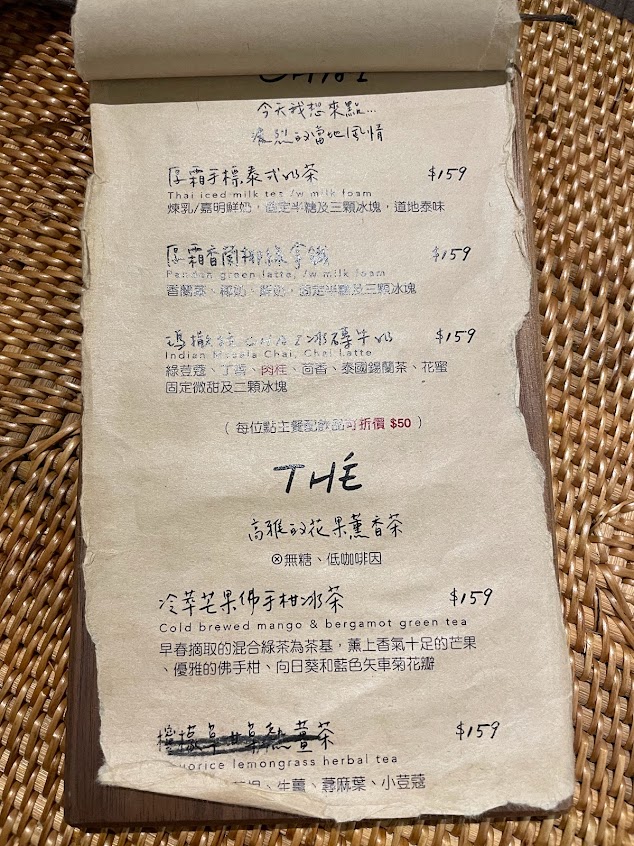 今天我想來點...
濃烈的當地風情
厚霜手標泰式奶茶 $159
Thai iced milk tea /w milk foam
煉乳/嘉明鮮奶，固定半糖及三顆冰塊，道地泰味
厚霜香蘭椰綠拿鐵 $159
Pandan green latte, /w milk foam
香蘭葉、椰奶、鮮奶，固定半糖及三顆冰塊
瑪撒拉 冰磚牛奶 $159
Indian Masala Chai, Chai Latte
綠荳蔻、丁香、肉桂、茴香、泰國錫蘭茶、花蜜
固定微甜及二顆冰塊
( 每位點主餐配飲品可折價 $50 )
THÉ
高雅的花果薰香茶
⊗無糖、低咖啡因
冷萃芒果佛手柑冰茶 $159
Cold brewed mango & bergamot green tea
早春摘取的混合綠茶為茶基，薰上香氣十足的芒果
、優雅的佛手柑、向日葵和藍色矢車菊花瓣
檸檬草甘草熱薑茶 $159
uorice lemongrass herbal tea
、生薑、蕁麻葉、小荳蔻